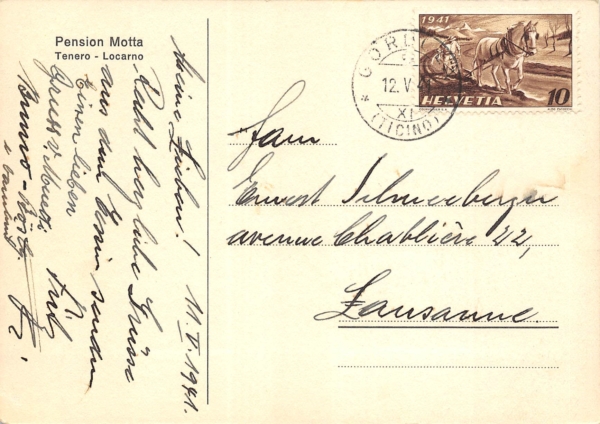 Pension Motta
Tenero - Locarno
Meine Lieben! 11. V. 1941.
Recht herzliche Grüsse
aus dem Tessin senden
Euren lieben
Gruss v. Moneti
1941
HELVETIA 10
GORDOLA
12. V. 41
XI
(TICINO)
Fam.
Ernest Schneeberger
avenue Chablière 22,
Lausanne